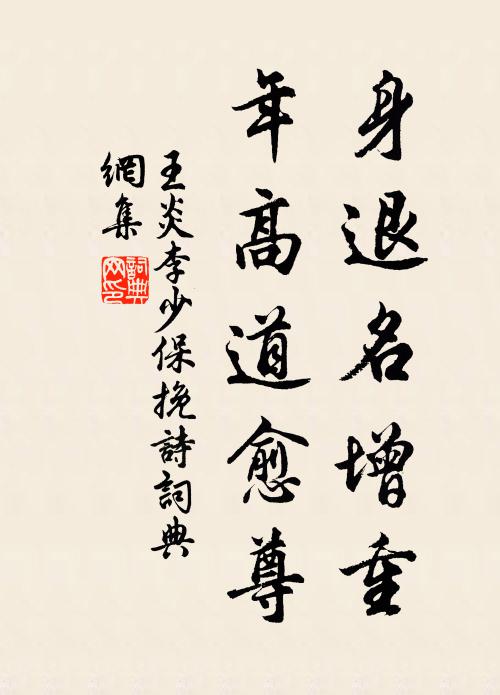 身退名增重
年高道愈尊
王炎李少保挽詩詞典
網集
詞典
网印